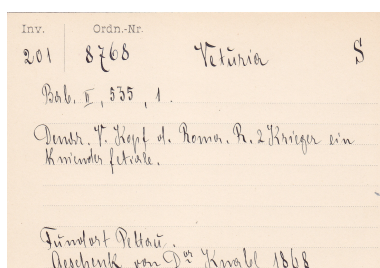 Inv. Ordn.-Nr.
201 8768 Veturia S
Bab. II, 535, 1.
Denar. V. Kopf d. Roma. R. 2 Krieger ein
Kniender fetiale.
Fundort Pettau.
Geschenk von Dr Knabl 1868